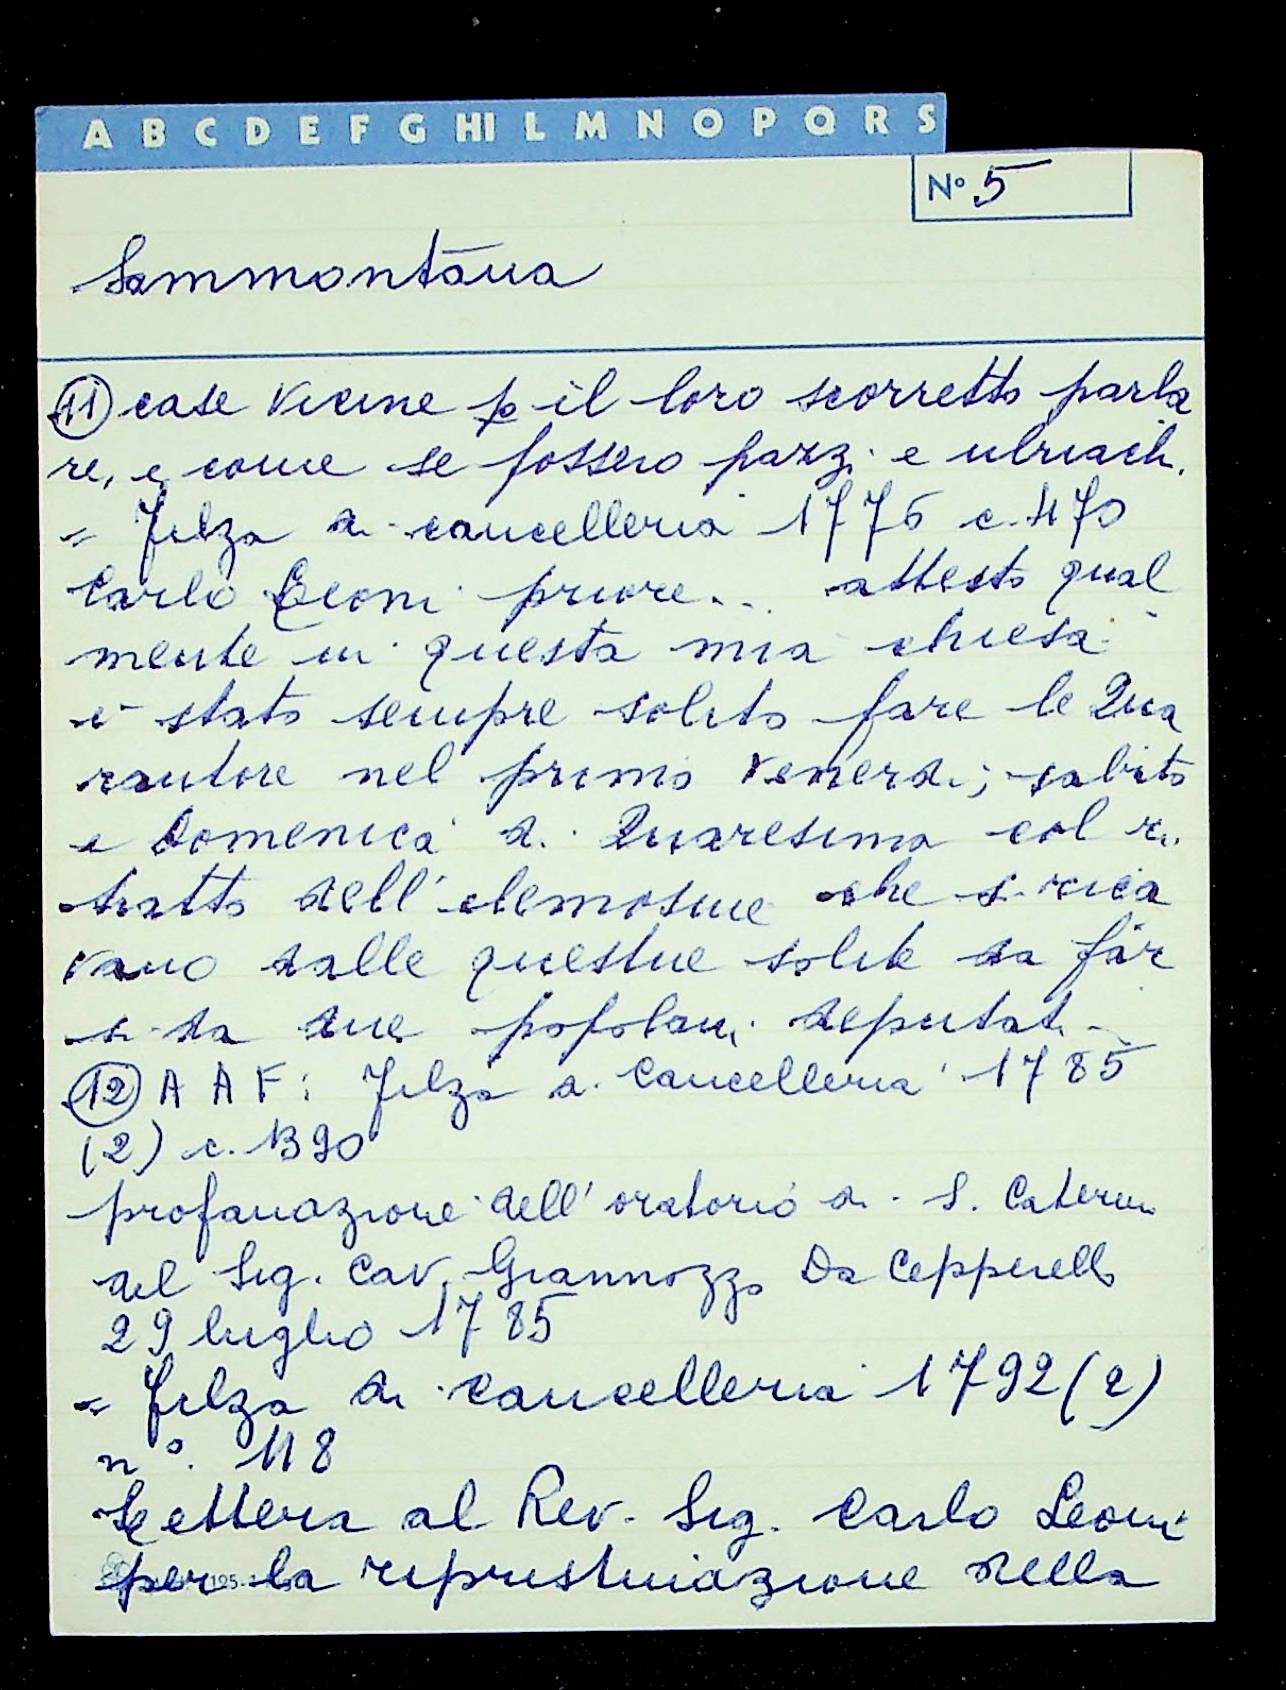 A B C D E F G HI L M N O P Q R S
N° 5
Sammontana
11 case vicine p il loro scorretto parla
re, e come se fossero pazzi e ubriachi.
= Filza di cancelleria 1776 c. 470
Carlo Leoni priore... attesto qual
mente in questa mia chiesa
è stato sempre solito fare le Qua
rantore nel primo venerdi; sabato
e Domenica di Quaresima col ri
tratto dell'elemosine che si rica
vano dalle questue solite da far
si da due popolani deputati -
12 A A F: Filza di Cancelleria 1785
(2) c. 1390
profanazione dell'oratorio di S. Caterina
del Sig. Cav. Giannozzo Da Cepperello
29 luglio 1785
= Filza di cancelleria 1792 (2)
n°. 118
Lettera al Rev. Sig. Carlo Leoni
per la ripristinazione nella